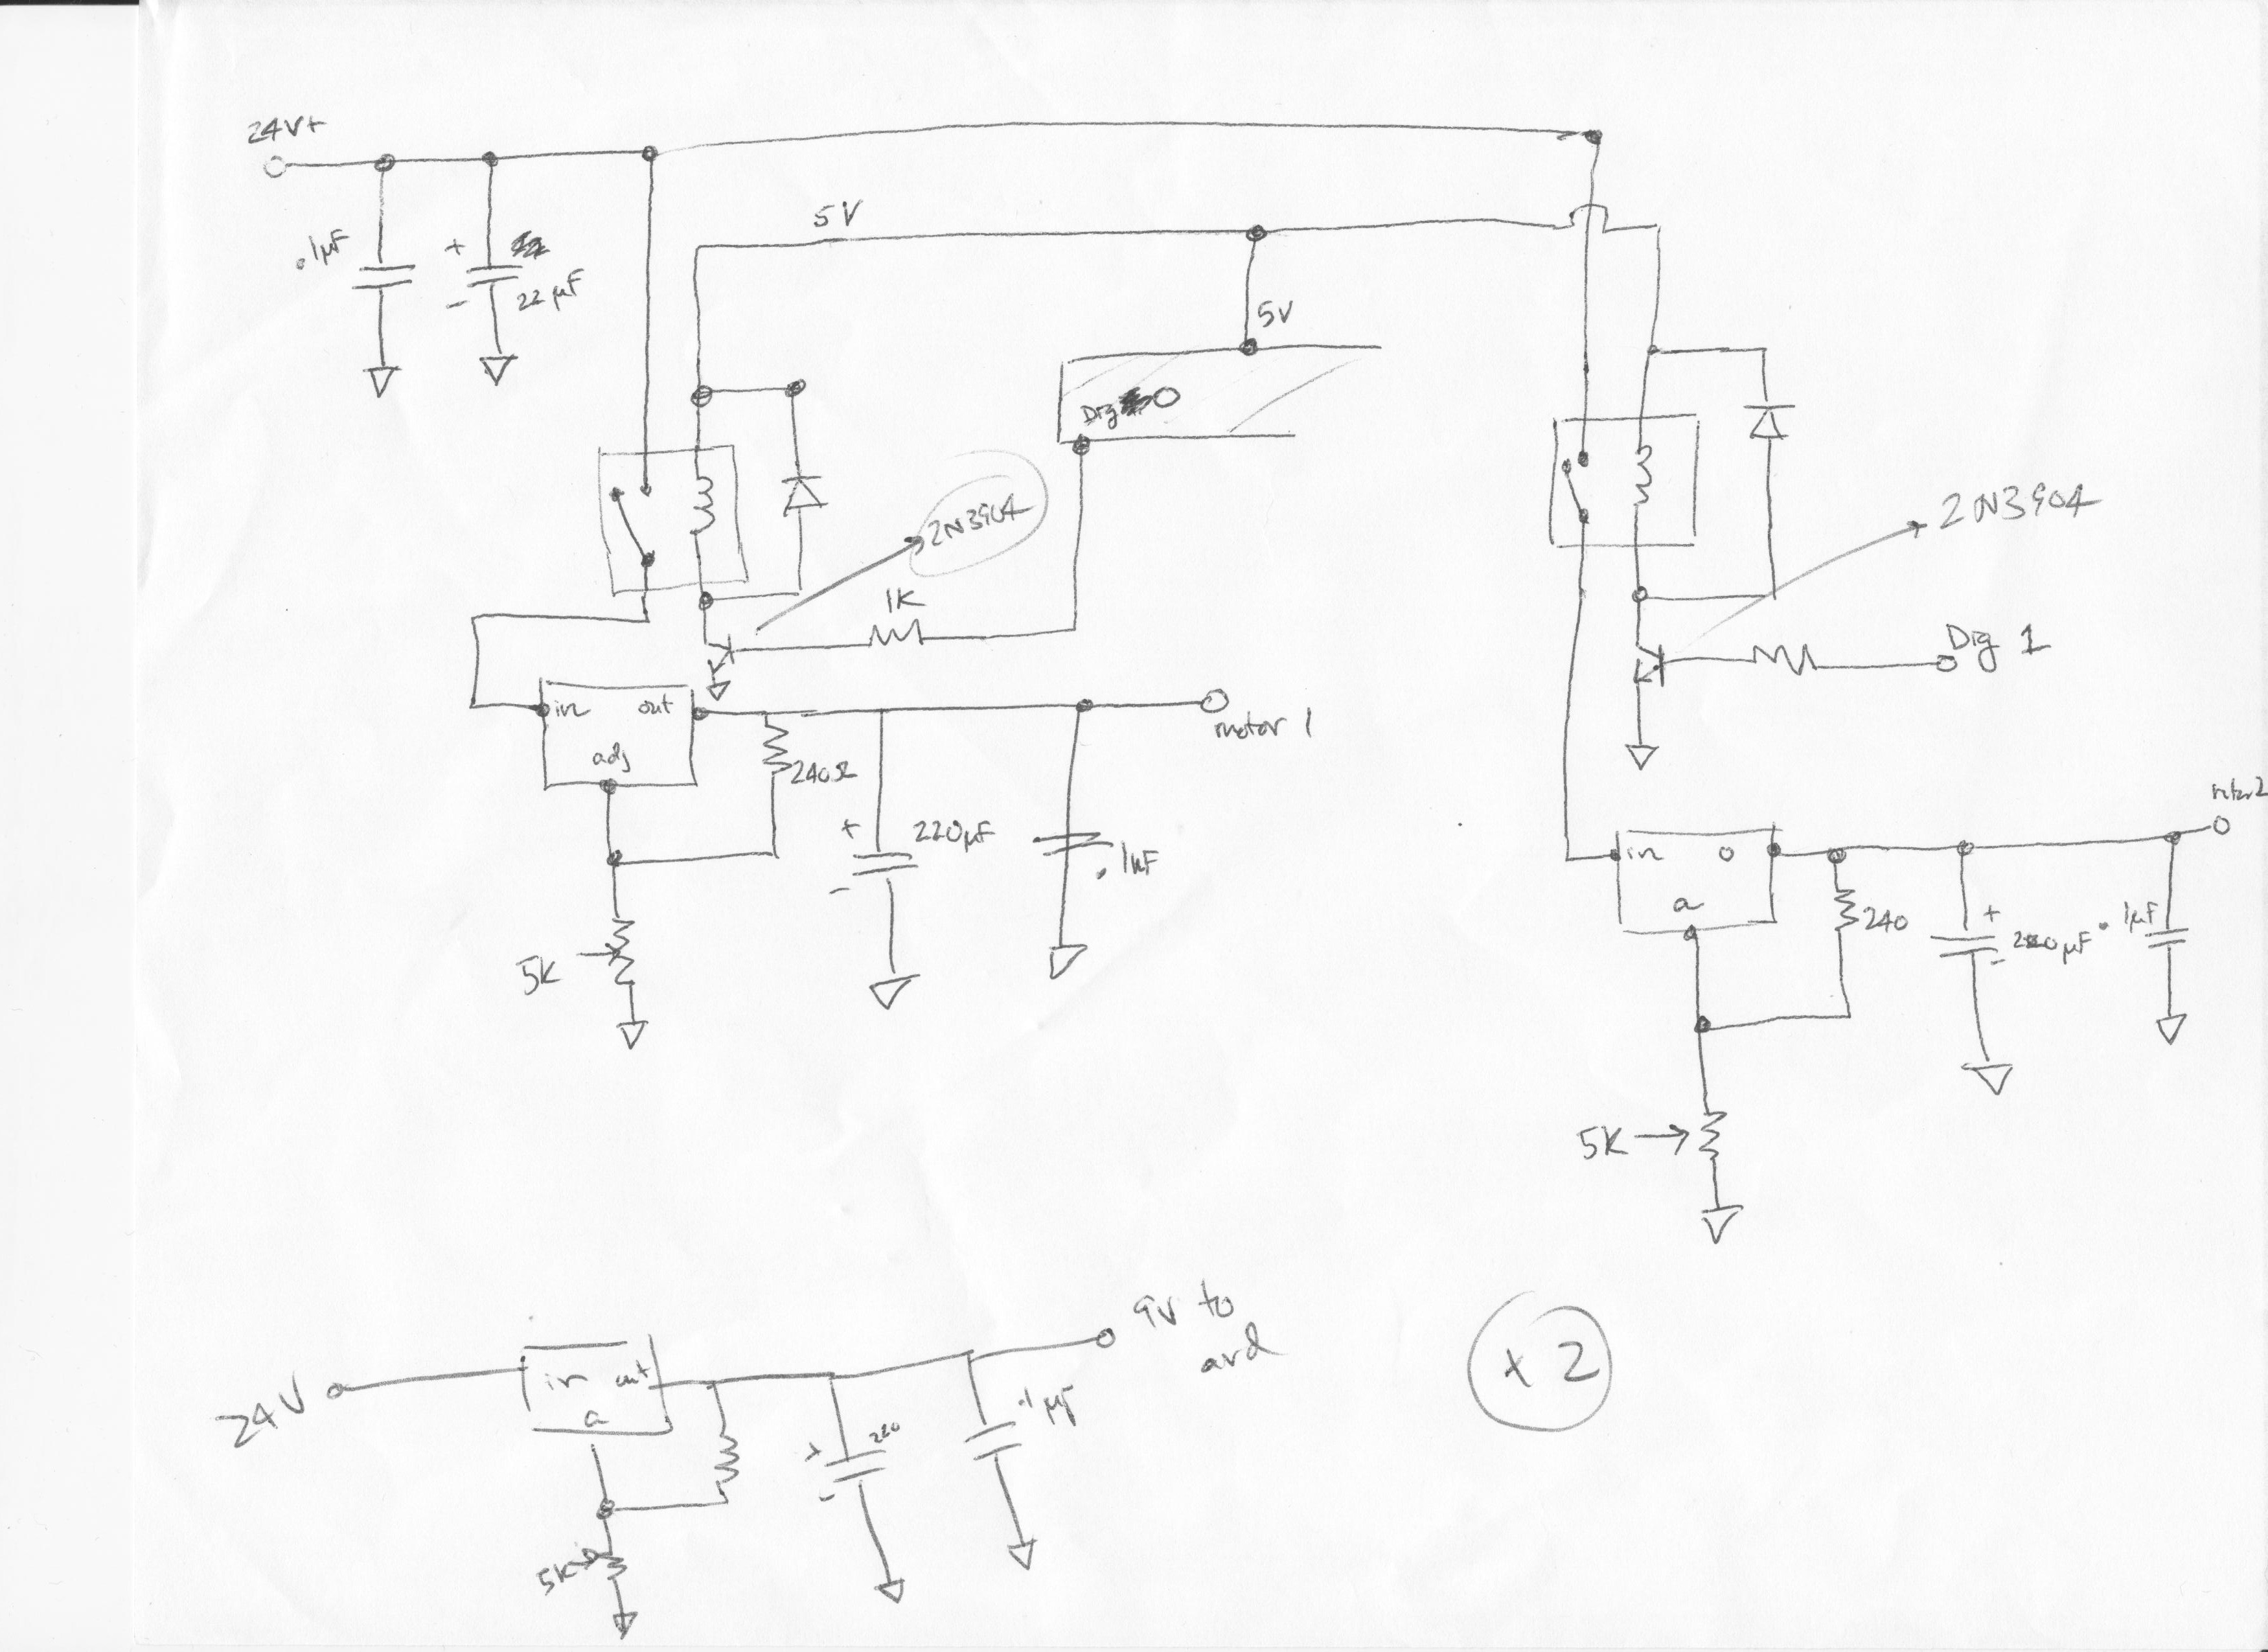 24V+
5V
.1µF
+
-
22µF
5V
Dig 0
2N3904
2N3904
1K
Dig 1
in
out
adj
motor 1
240Ω
+
-
220µF
.1µF
5K
in
o
a
240
+
-
220µF
.1µF
5K
9V to
ard
24V
in
out
a
+
-
220
.1µF
5K
x 2